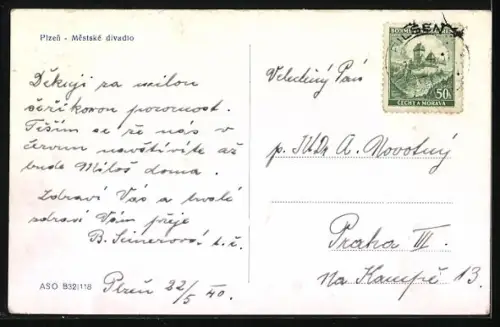 Plzeň - Městské divadlo
Děkuji za milou
šeříkovou pozornost.
Těším se že nás v
červnu navštívíte až
bude Miloš doma.
Zdraví Vás a trvalé
zdraví Vám přeje
B.
Plzeň 22/5 40.
ASO B32|118
BÖHMEN
50
ČECHY A MORAVA
Velectěný Pán
p. A. Novotný
Praha III.
Na Kampě 13.